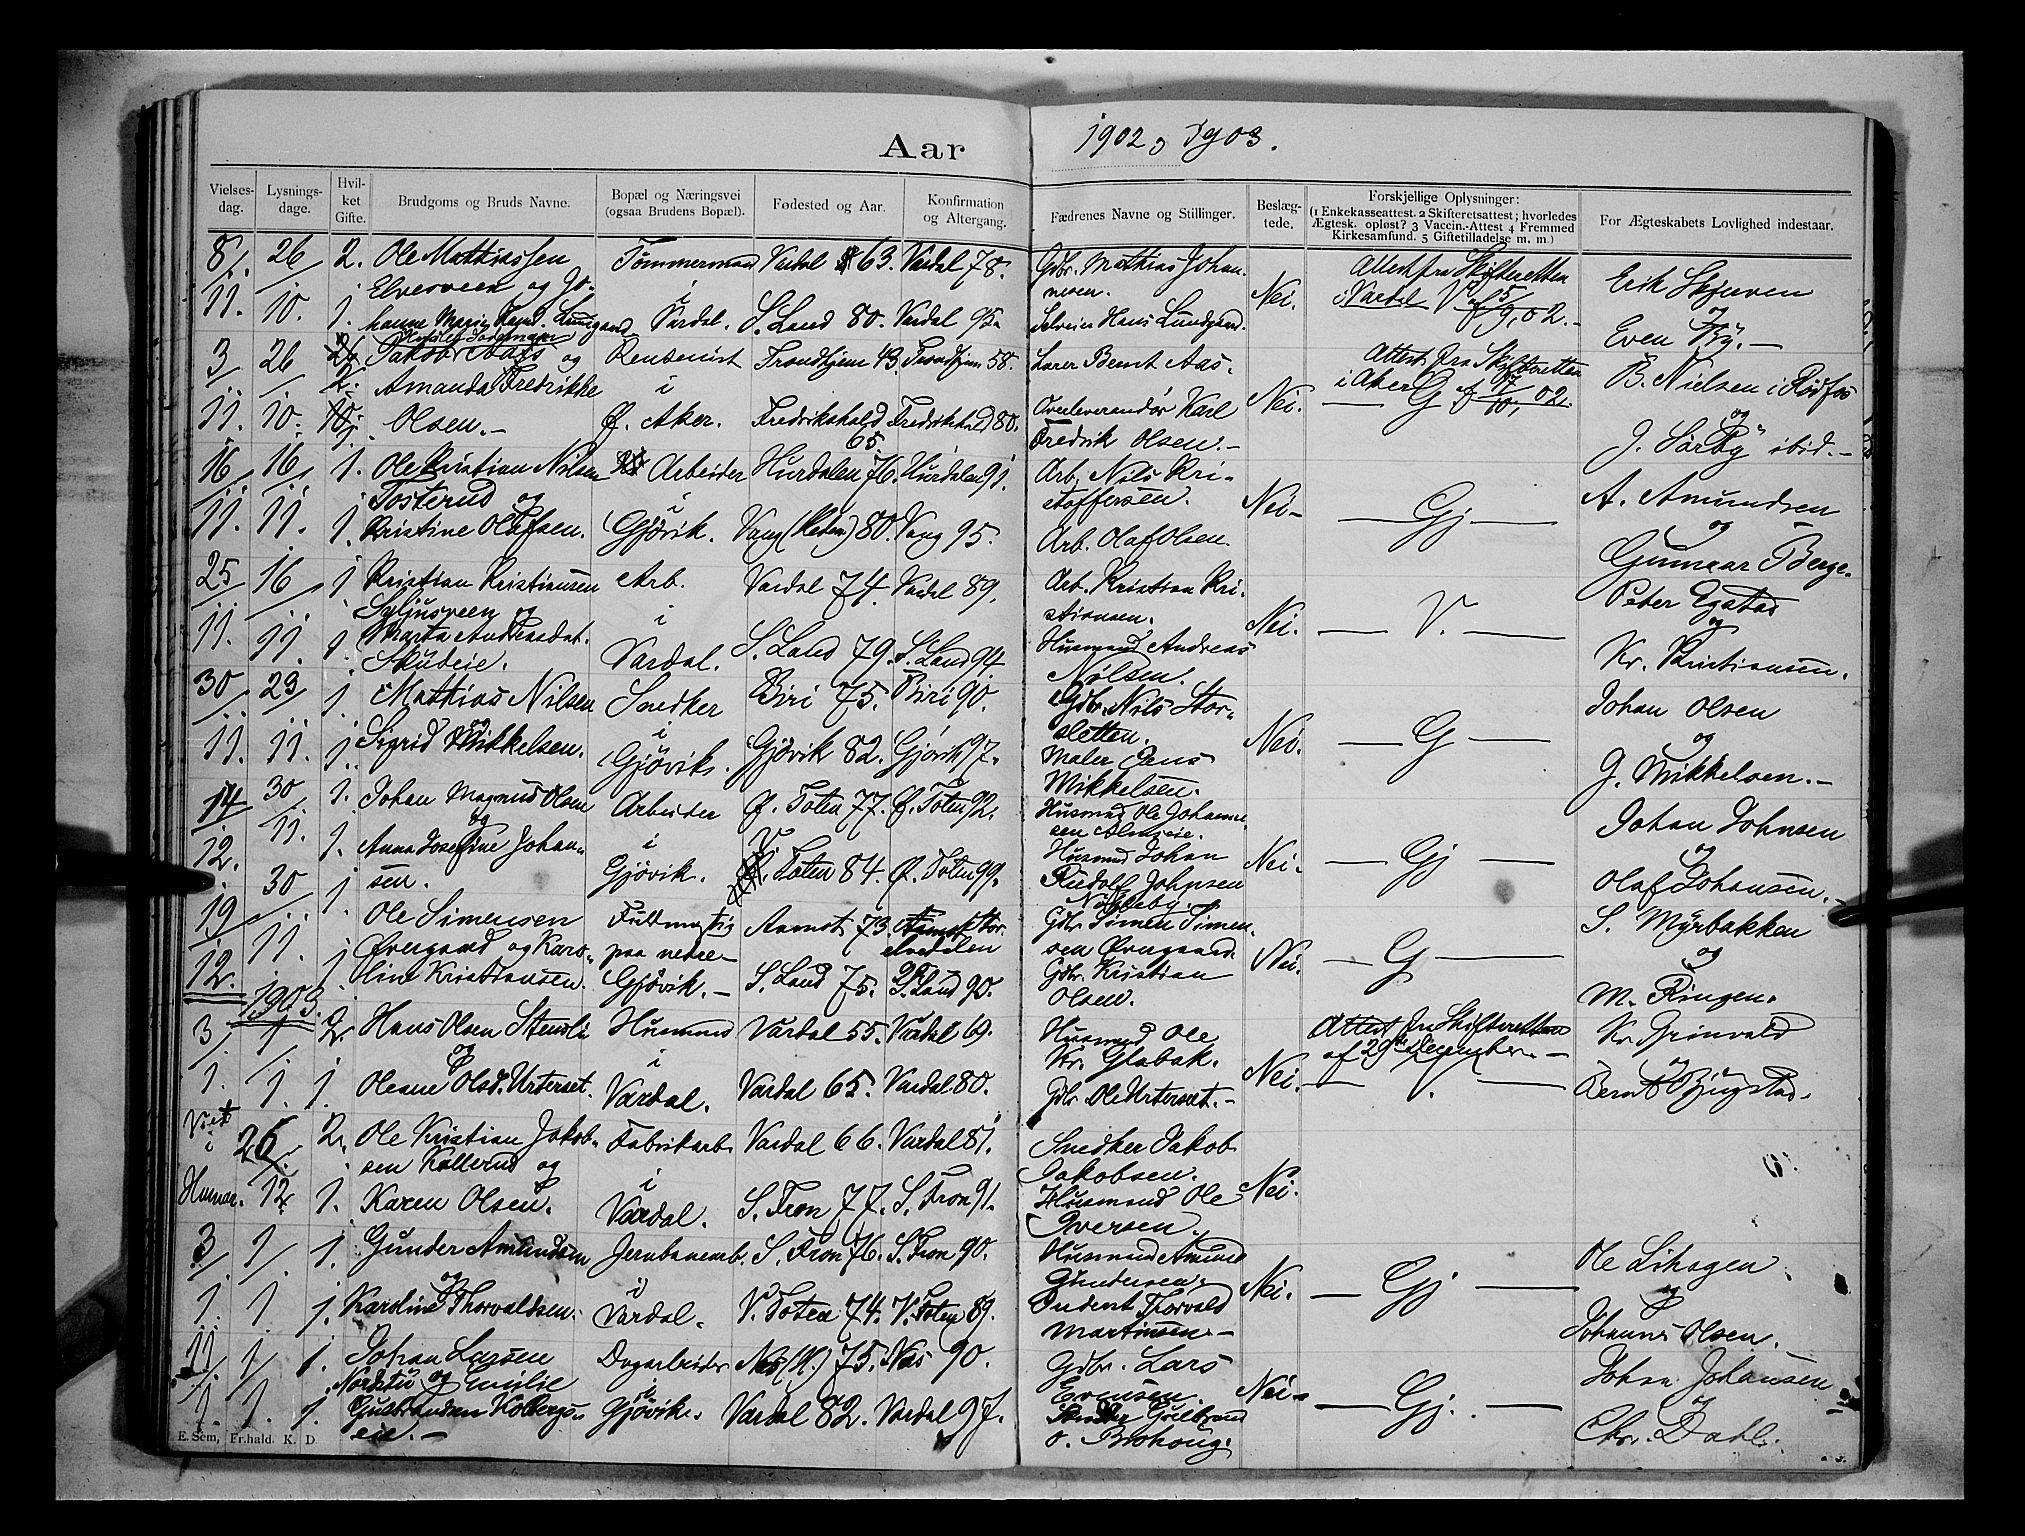 Aar 1902 og 1903.
Vielses-dag. Lysnings-dage. Hvil-ket Gifte. Brudgoms og Bruds Navne. Bopæl og Næringsvei (ogsaa Brudens Bopæl). Fødested og Aar. Konfirmation og Altergang. Fædrenes Navne og Stillinger. Beslæg-tede. Forskjellige Oplysninger: (1 Enkekasseattest. 2 Skifteretsattest; hvorledes Ægtesk. opløst? 3 Vaccin.-Attest 4 Fremmed Kirkesamfund. 5 Giftetilladelse m. m.) For Ægteskabets Lovlighed indestaar.
8/ 26/ 2. Ole Mathiassen Tömmermand Vardal 63. Vardal 78. Gdbr. Mathias Johan-
Elvesveen og Jo- i nesen. Nei. Attest fra Skifteretten Erik Skjerven
11. 10. 1. hanne Marie Vardal. S. Land 80. Vardal 95. Selveier Hans Lundgaard. i Vardal V af 5/9, 02. og
Even By.
3/ 26/ 2. Jakob Aas og Rentenist Trondhjem 43. Trondhjem 58. Lærer Bernt Aas. Attest fra Skifteretten B. Nielsen i Rødfos
Amanda Fredrikke i Nei. i Aker G og
11. 10. Olsen. Ø. Aker. Fredrikshald 65 Fredrikshald 80. Overleverandör Karl
Fredrik Olsen. J. Sörby ibid.
16/ 16/ 1. Ole Kristian Nilsen Arbeider Hurdalen 76. Hurdalen 91. Arb. Nils Kri-
Tosterud og i stoffersen. Nei Gj A. Amundsen
11. 11. 1. Kristine Olafsen. Gjövik. Vang (Hedm) 80. Vang 95. Arb. Olaf Olsen. og
Gunnar Berge.
25/ 16/ 1 Kristian Kristiansen Arb. Vardal 74. Vardal 89. Arb. Kristian Kri- Peter Egstad
Syljusveen og i stiansen. Nei. V. og
11. 11. 1. Marta Andreasdat. Vardal. S. Land 79. S. Land 94 Husmand Andreas Kr. Kristiansen.
Skudeie. Nilsen.
30/ 23/ 1 Mathias Nilsen Snedker Biri 75. Biri 90. Gdbr. Nils Stor- Johan Olsen
og i sletten. Nei. G og
11. 11. 1. Sigrid Mikkelsen. Gjövik. Gjövik 82. Gjövik 97. Maler Jens J. Mikkelsen.
Mikkelsen.
14/ 30/ 1. Johan Magnus Olsen Arbeider Ø. Toten 77. Ø. Toten 92. Husmand Ole Johanne- Johan Johnsen
og i sen Alm eie. Nei. Gj og
12. 11. 1. Anna Josefine Johan- Gjövik. V. Toten 84. Ø. Toten 99. Husmand Johan Olaf Johansen.
sen. Rudolf Johnsen
19/ 30/ 1. Ole Simensen Fuldmægtig Aamot 73. Gdbr. Simen Simen- S. Myrbakken
Øvergaard og Karo- paa nedre sen Øvergaard Nei. G og
12. 11. 1 line Kristiansen. Gjövik. S. Land 75. S. Land 90. Gdbr. Kristian M. Ringen.
Olsen.
1903.
3/ 1/ 2. Hans Olsen Stensli Husmand Vardal 55. Vardal 69. Husmand Ole Attest fra Skifteretten Kr. Grinvold
og i Kr. Glæbak. Nei. af 29de December. og
1. 1. 1. Oleane Olsd. Urterset. Vardal. Vardal 65. Vardal 80. Gdbr. Ole Urterset. V. Bernt Bjugstad.
Viet 26/ 2. Ole Kristian Jakob- Fabrikarb. Vardal 66. Vardal 81. Snedker Jakob
i sen Kollerud og i Jakobsen. Nei.
Hunnar. 12. 1. Karen Olsen. Vardal. S. Fron 77. S. Fron 91. Husmand Ole
Iversen.
3/ 1/ 1. Gunder Amundsen Jernbanearb. S. Fron 76. S. Fron 90. Husmand Amund Ole Lihagen
og i Gundersen. Nei. Gj og
1. 1. 1. Karoline Thorvaldsen. Vardal. V. Toten 74. V. Toten 89. Thorvald Johannes Olsen.
Martinsen.
11/ 1/ 1. Johan Larsen Dagarbeider Nes (H.) 75. Nes 90. Gdbr. Lars Johan Johansen
Nordstu og Emilie i Evensen. Nei Gj. og
1. 1. 1. Gulbrandsen Kolbergs- Gjövik. Vardal 82. Vardal 97. Gulbrand Chr. Dahl.
eie. Brohoug.
E. Sem, Fr.hald. K. D.